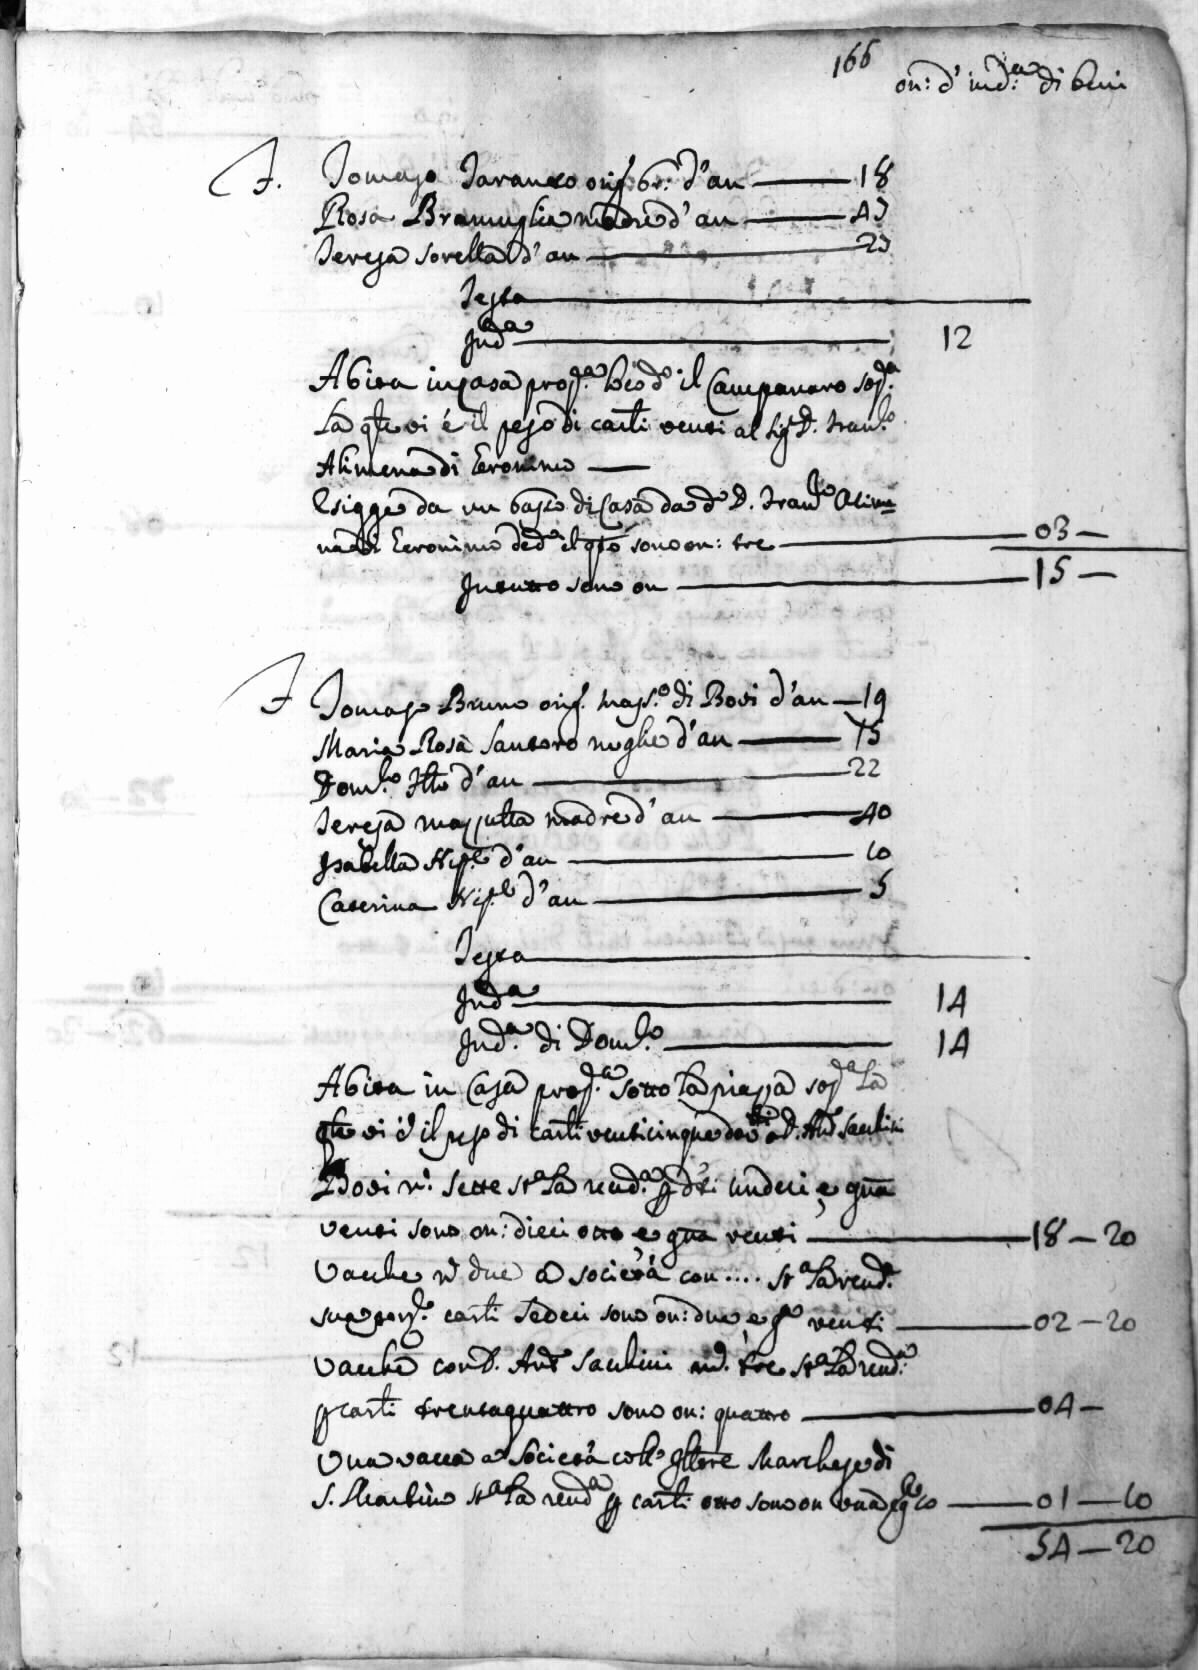 166
on: d' ind:a di beni
T. Tomaso Taranto orig. br: d'an — 18
Rosa Bramuglia madre d'an — 47
Teresa sorella d'an — 23
Testa —
Ind.a — 12
Abita in casa prop.a loco d.o il Campanaro sop.a
La qle vi é il peso di carli venti al Sig.r D. Fran.co
Alimena di Geronimo —
Esigge da un basso di Casa da d.o D. Fran.co Alime
na di Geronimo sono on: tre — 03 —
In tutto sono on — 15 —
T Tomaso Bruno orig. mass.o di Bovi d'an — 19
Maria Rosa Santoro moglie d'an — 15
Dom.co fllo d'an — 22
Teresa mazzulla madre d'an — 40
Isabella Nip.e d'an — 10
Caterina Nip.e d'an — 5
Testa —
Ind.a — 14
Ind.a di Dom.co — 14
Abita in Casa prop.a sotto La piazza sop.a La
qle vi é il peso di carli venticinque D. Ant.o Sacchini
Bovi n: sette st.a La rend.a p d.ti undeci e gna
venti sono on: dieci otto e gna venti — 18 — 20
Vacche n. due a società con .... st.a La rend.a
sua porz.e carli sedeci sono on: due e g.a venti — 02 — 20
Vacche con D. Ant.o Sacchini nd. tre st.a La rend.a
p carli trentaquattro sono on: quattro — 04 —
Una vacca a società coll' Illtre Marchese di
S. Martino st.a La rend.a p carli otto sono on una e g.a 10 — 01 — 10
54 — 20